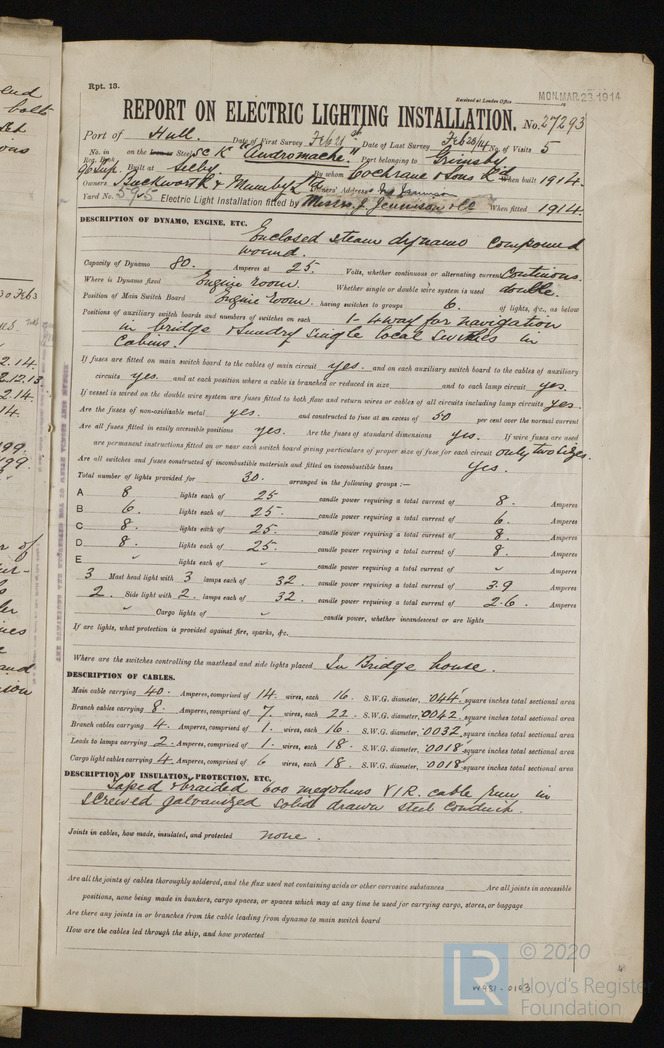 Rpt. 13.
Received at London Office MON. MAR. 23. 1914
REPORT ON ELECTRIC LIGHTING INSTALLATION. No. 27293
Port of Hull. Date of First Survey Feb 21st Date of Last Survey Feb 28/14 No. of Visits 5
No. in Reg. Book on the Iron or Steel SC K "Andromache." Port belonging to Grimsby
96 Sup. Built at Selby By whom Cochrane & Sons Ld When built 1914.
Owners Buckworth & Mumby Ld Owners' Address
Yard No. 595 Electric Light Installation fitted by Messrs. J. Jennison & Co When fitted 1914.
DESCRIPTION OF DYNAMO, ENGINE, ETC.
Enclosed steam dynamo compound
wound.
Capacity of Dynamo 80. Amperes at 25. Volts, whether continuous or alternating current Continuous.
Where is Dynamo fixed Engine room. Whether single or double wire system is used double.
Position of Main Switch Board Engine Room. having switches to groups 6. of lights, &c., as below
Positions of auxiliary switch boards and numbers of switches on each 1- 4 way for navigation
in bridge & sundry single local switches in
Cabins.
If fuses are fitted on main switch board to the cables of main circuit yes. and on each auxiliary switch board to the cables of auxiliary
circuits yes. and at each position where a cable is branched or reduced in size and to each lamp circuit yes.
If vessel is wired on the double wire system are fuses fitted to both flow and return wires or cables of all circuits including lamp circuits yes.
Are the fuses of non-oxidizable metal yes. and constructed to fuse at an excess of 50 per cent over the normal current
Are all fuses fitted in easily accessible positions yes. Are the fuses of standard dimensions yes. If wire fuses are used
are permanent instructions fitted on or near each switch board giving particulars of proper size of fuse for each circuit only two sizes.
Are all switches and fuses constructed of incombustible materials and fitted on incombustible bases yes.
Total number of lights provided for 30. arranged in the following groups :—
A 8 lights each of 25 candle power requiring a total current of 8. Amperes
B 6. lights each of 25. candle power requiring a total current of 6. Amperes
C 8. lights each of 25. candle power requiring a total current of 8. Amperes
D 8. lights each of 25. candle power requiring a total current of 8. Amperes
E " lights each of " candle power requiring a total current of " Amperes
3 Mast head light with 3 lamps each of 32 candle power requiring a total current of 3.9 Amperes
2. Side light with 2. lamps each of 32 candle power requiring a total current of 2.6. Amperes
" Cargo lights of " candle power, whether incandescent or arc lights
If arc lights, what protection is provided against fire, sparks, &c.
Where are the switches controlling the masthead and side lights placed In Bridge house.
DESCRIPTION OF CABLES.
Main cable carrying 40. Amperes, comprised of 14. wires, each 16. S.W.G. diameter, .044 square inches total sectional area
Branch cables carrying 8. Amperes, comprised of 7. wires, each 22. S.W.G. diameter, .0042 square inches total sectional area
Branch cables carrying 4. Amperes, comprised of 1. wires, each 16. S.W.G. diameter, .0032 square inches total sectional area
Leads to lamps carrying 2. Amperes, comprised of 1. wires, each 18. S.W.G. diameter, .0018 square inches total sectional area
Cargo light cables carrying 4. Amperes, comprised of 6 wires, each 18. S.W.G. diameter, .0018 square inches total sectional area
DESCRIPTION OF INSULATION, PROTECTION, ETC.
Taped & braided 600 megohms V.I.R. cable run in
screwed galvanized solid drawn steel conduit.
Joints in cables, how made, insulated, and protected none.
Are all the joints of cables thoroughly soldered, and the flux used not containing acids or other corrosive substances Are all joints in accessible
positions, none being made in bunkers, cargo spaces, or spaces which may at any time be used for carrying cargo, stores, or baggage
Are there any joints in or branches from the cable leading from dynamo to main switch board
How are the cables led through the ship, and how protected
W981-0103
© 2020
LR Lloyd's Register
Foundation